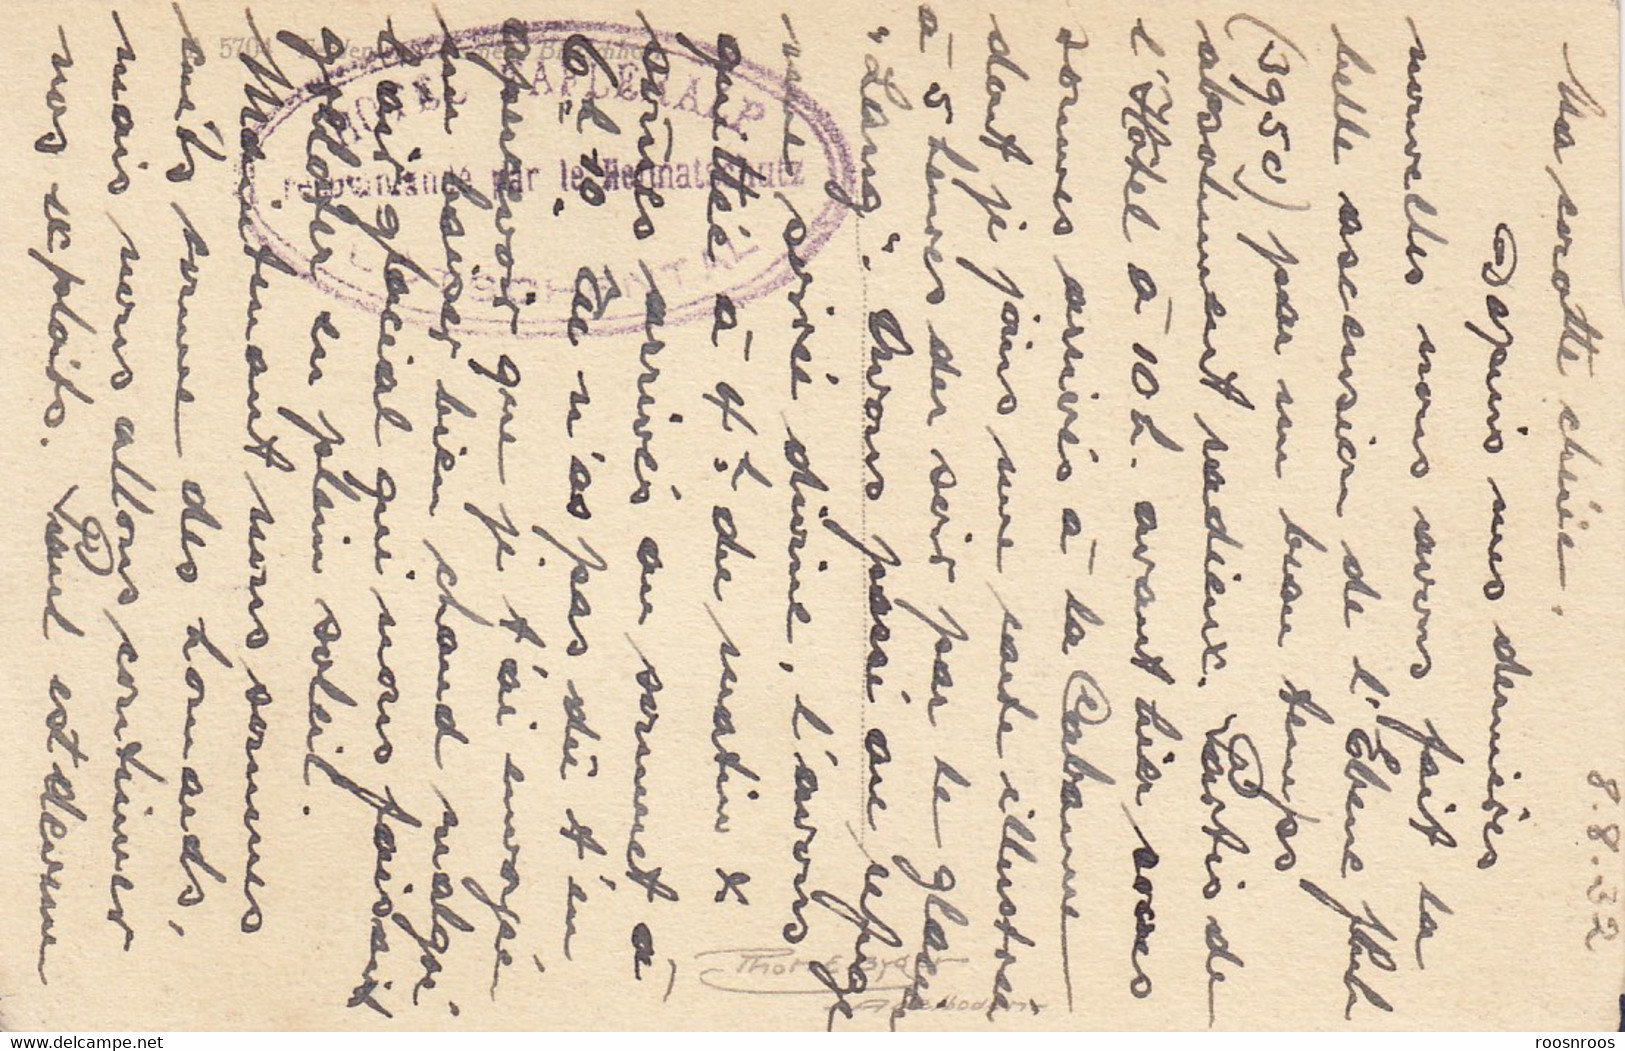 8.8.32
Ma cocotte chérie,
Depuis mes dernières
nouvelles nous avons fait la
belle ascension de l'Ebene fluh
(3950) par un beau temps
absolument radieux. Partis de
l'Hôtel à 10 h. avant hier nous
sommes arrivés à la Cabanne
dont je joins une carte illustrée
à 5 heures du soir par le glacier
"Lang". Avons passé au refuge
une soirée divine, l'avons
quittée à 4 h. du matin &
sommes arrivés au sommet à
6 h 10. Tu n'as pas dû t'en
apercevoir que je t'ai envoyé
un baiser bien chaud malgré
l'air glacial qui nous faisait
grelotter en plein soleil.
Maintenant nous sommes
cuits comme des homards,
mais nous allons continuer
nos exploits. Paul est devenu
5704
HOTEL FAFLERALP
recommandé par le Heimatschutz
LÖTSCHENTAL
Phot. E. Gyger
Adelboden
roosnroos